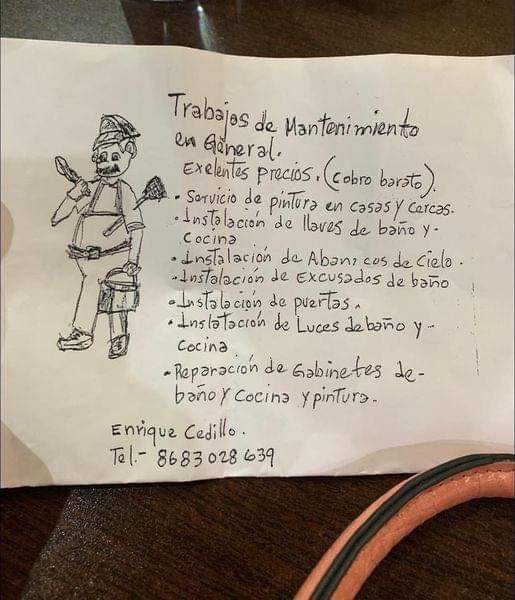 Trabajos de Mantenimiento
en General.
Exelentes precios. (cobro barato).
• Servicio de pintura en casas y cercas.
• Instalación de llaves de baño y-
cocina
• Instalación de Abanicos de Cielo.
• Instalación de Excusados de baño
• Instalación de puertas.
• Instatación de Luces de baño y-
cocina
• Reparación de Gabinetes de-
baño y cocina y pintura.
Enrique Cedillo.
Tel.- 8683028639